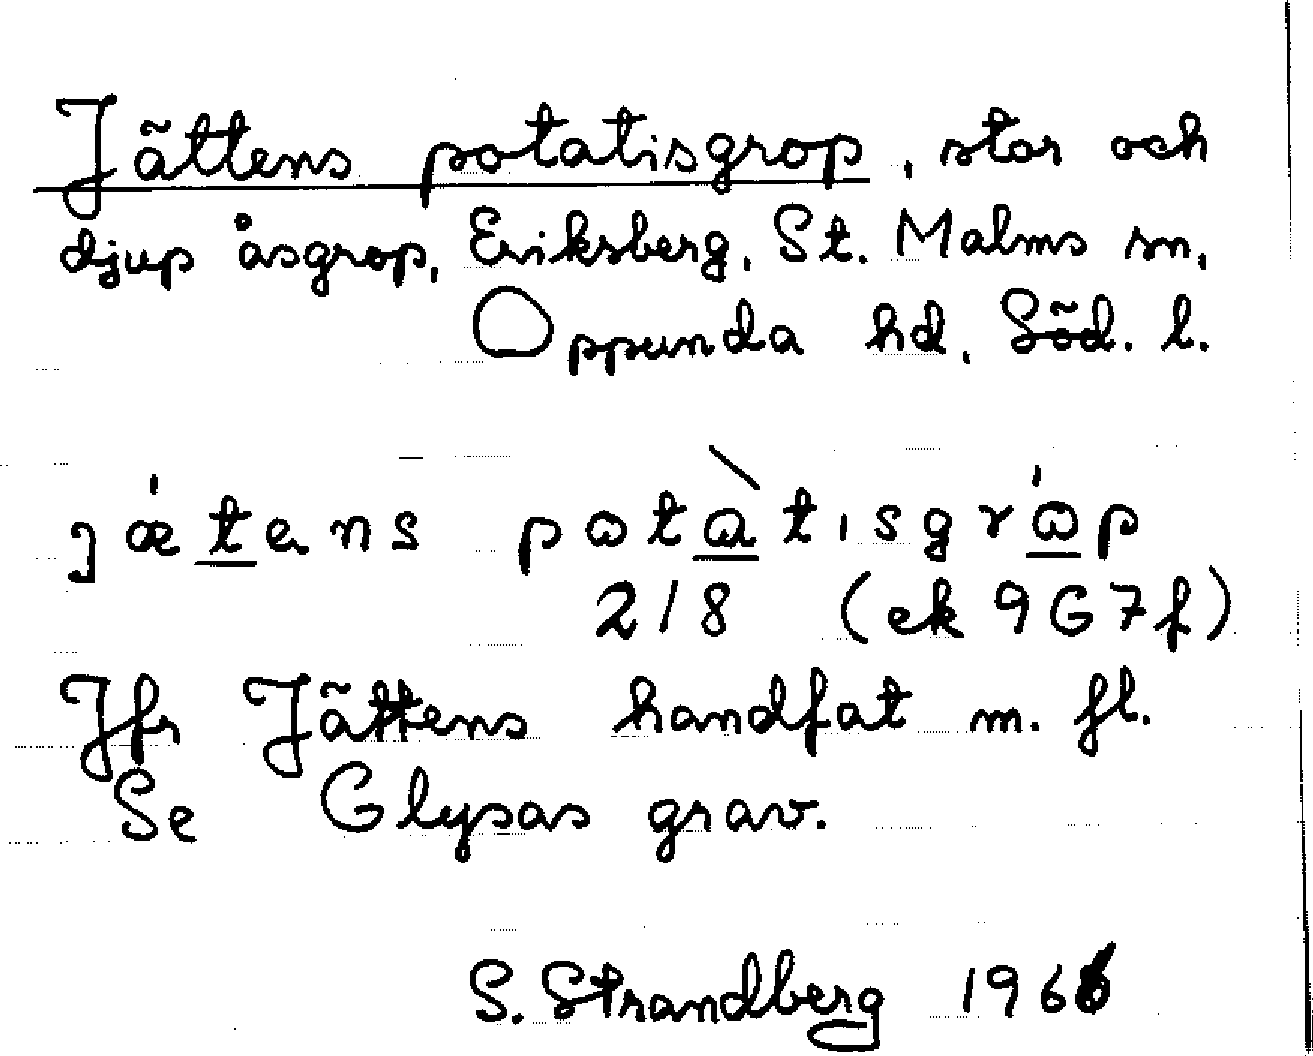 Jättens potatisgrop, stor och
djup åsgrop, Eriksberg, St. Malms sn,
Oppunda hd, Söd. l.
jǽtens potàtisgróp
2/8 (ek 9G7f)
Jfr Jättens handfat m. fl.
Se Glysas grav.
S. Strandberg 1966